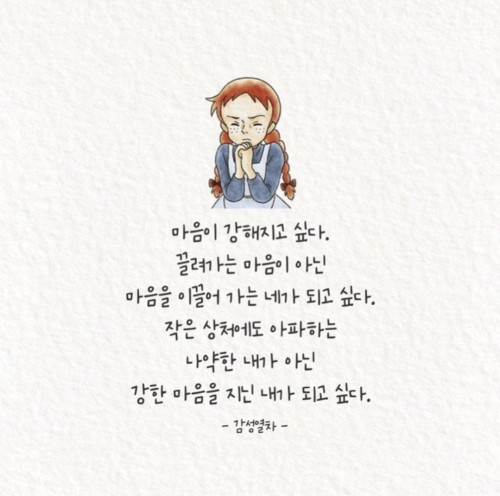 마음이 강해지고 싶다.
끌려가는 마음이 아닌
마음을 이끌어 가는 네가 되고 싶다.
작은 상처에도 아파하는
나약한 내가 아닌
강한 마음을 지닌 내가 되고 싶다.
- 감성열차 -